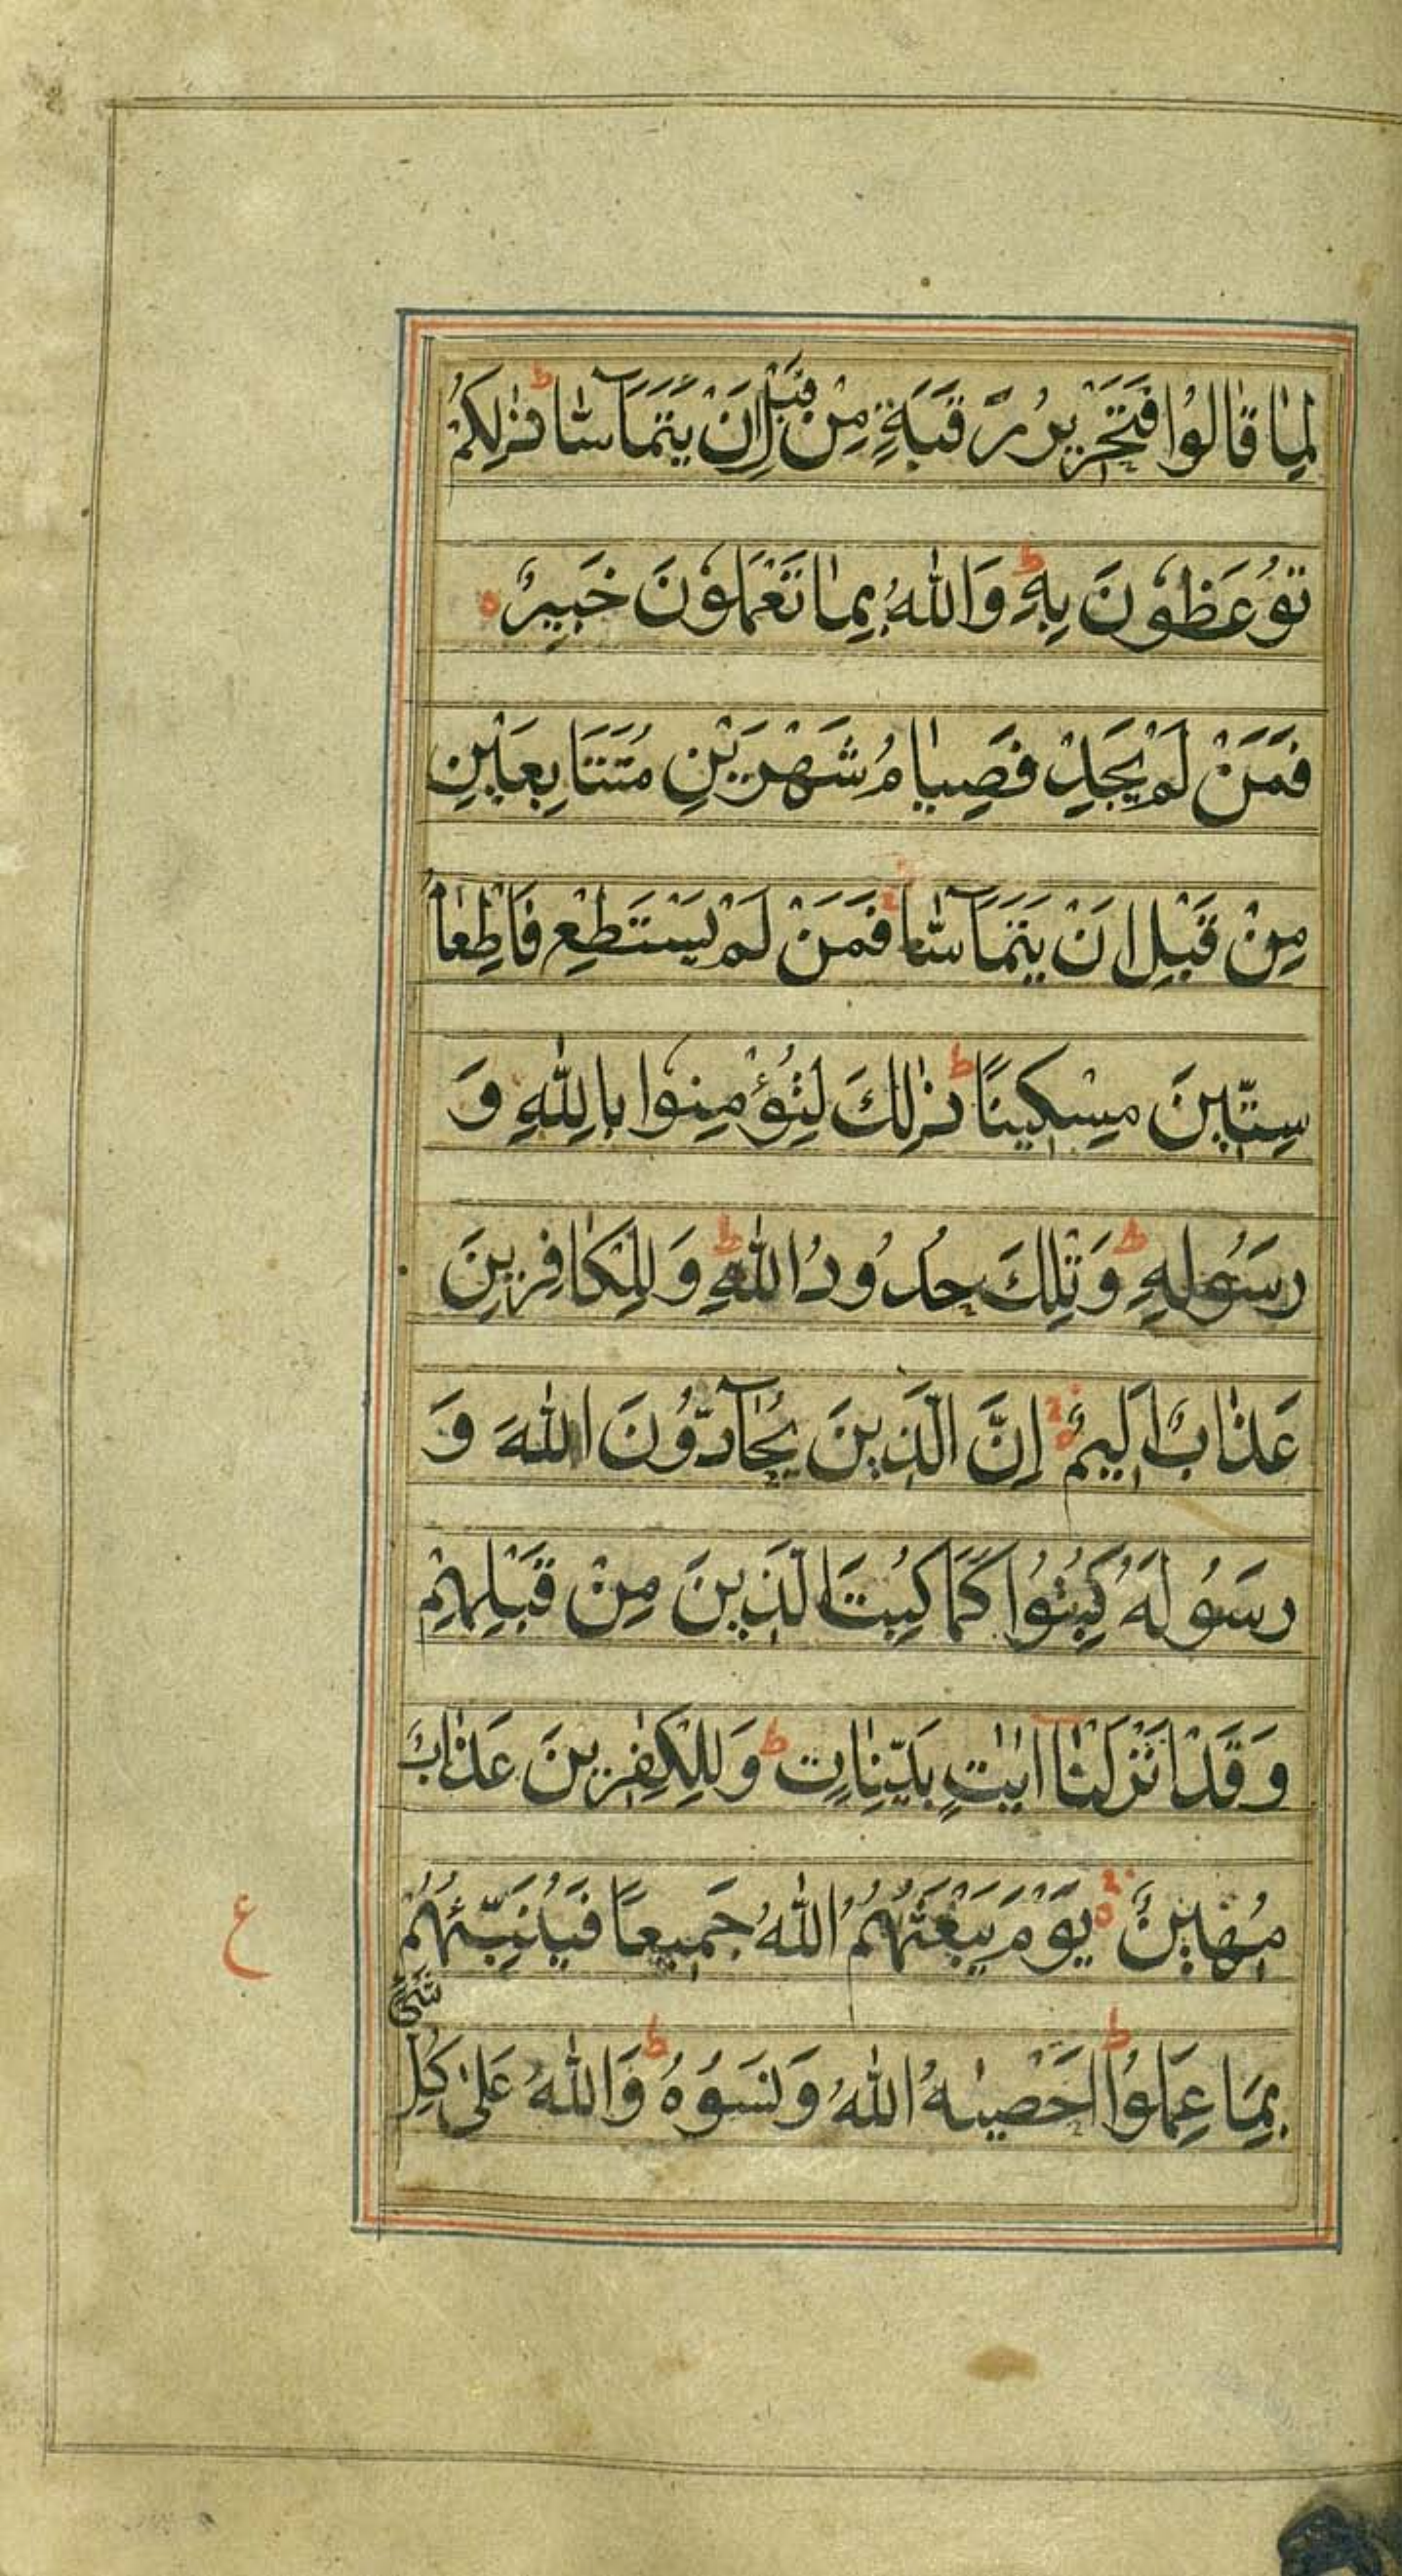 لِمَا قَالُوا فَتَحْرِيرُ رَقَبَةٍ مِنْ قَبْلِ اَنْ يَتَمَآسَّا ط ذٰلِكُمْ
تُوْعَظُوْنَ بِهٖ ط وَاللّٰهُ بِمَا تَعْمَلُوْنَ خَبِيْرٌ ه
فَمَنْ لَمْ يَجِدْ فَصِيَامُ شَهْرَيْنِ مُتَتَابِعَيْنِ
مِنْ قَبْلِ اَنْ يَتَمَآسَّا فَمَنْ لَمْ يَسْتَطِعْ فَاِطْعَامُ
سِتِّيْنَ مِسْكِيْنًا ط ذٰلِكَ لِتُؤْمِنُوْا بِاللّٰهِ وَ
رَسُوْلِهٖ ط وَتِلْكَ حُدُوْدُ اللّٰهِ ط وَلِلْكَافِرِيْنَ
عَذَابٌ اَلِيْمٌ ه اِنَّ الَّذِيْنَ يُحَآدُّوْنَ اللّٰهَ وَ
رَسُوْلَهُ كُبِتُوْا كَمَا كُبِتَ الَّذِيْنَ مِنْ قَبْلِهِمْ
وَقَدْ اَنْزَلْنَا اٰيٰتٍ بَيِّنَاتٍ ط وَلِلْكٰفِرِيْنَ عَذَابٌ
مُهِيْنٌ ه يَوْمَ يَبْعَثُهُمُ اللّٰهُ جَمِيْعًا فَيُنَبِّئُهُمْ
ع
بِمَا عَمِلُوْا ط اَحْصٰىهُ اللّٰهُ وَنَسُوْهُ ط وَاللّٰهُ عَلٰى كُلِّ
شَىْ